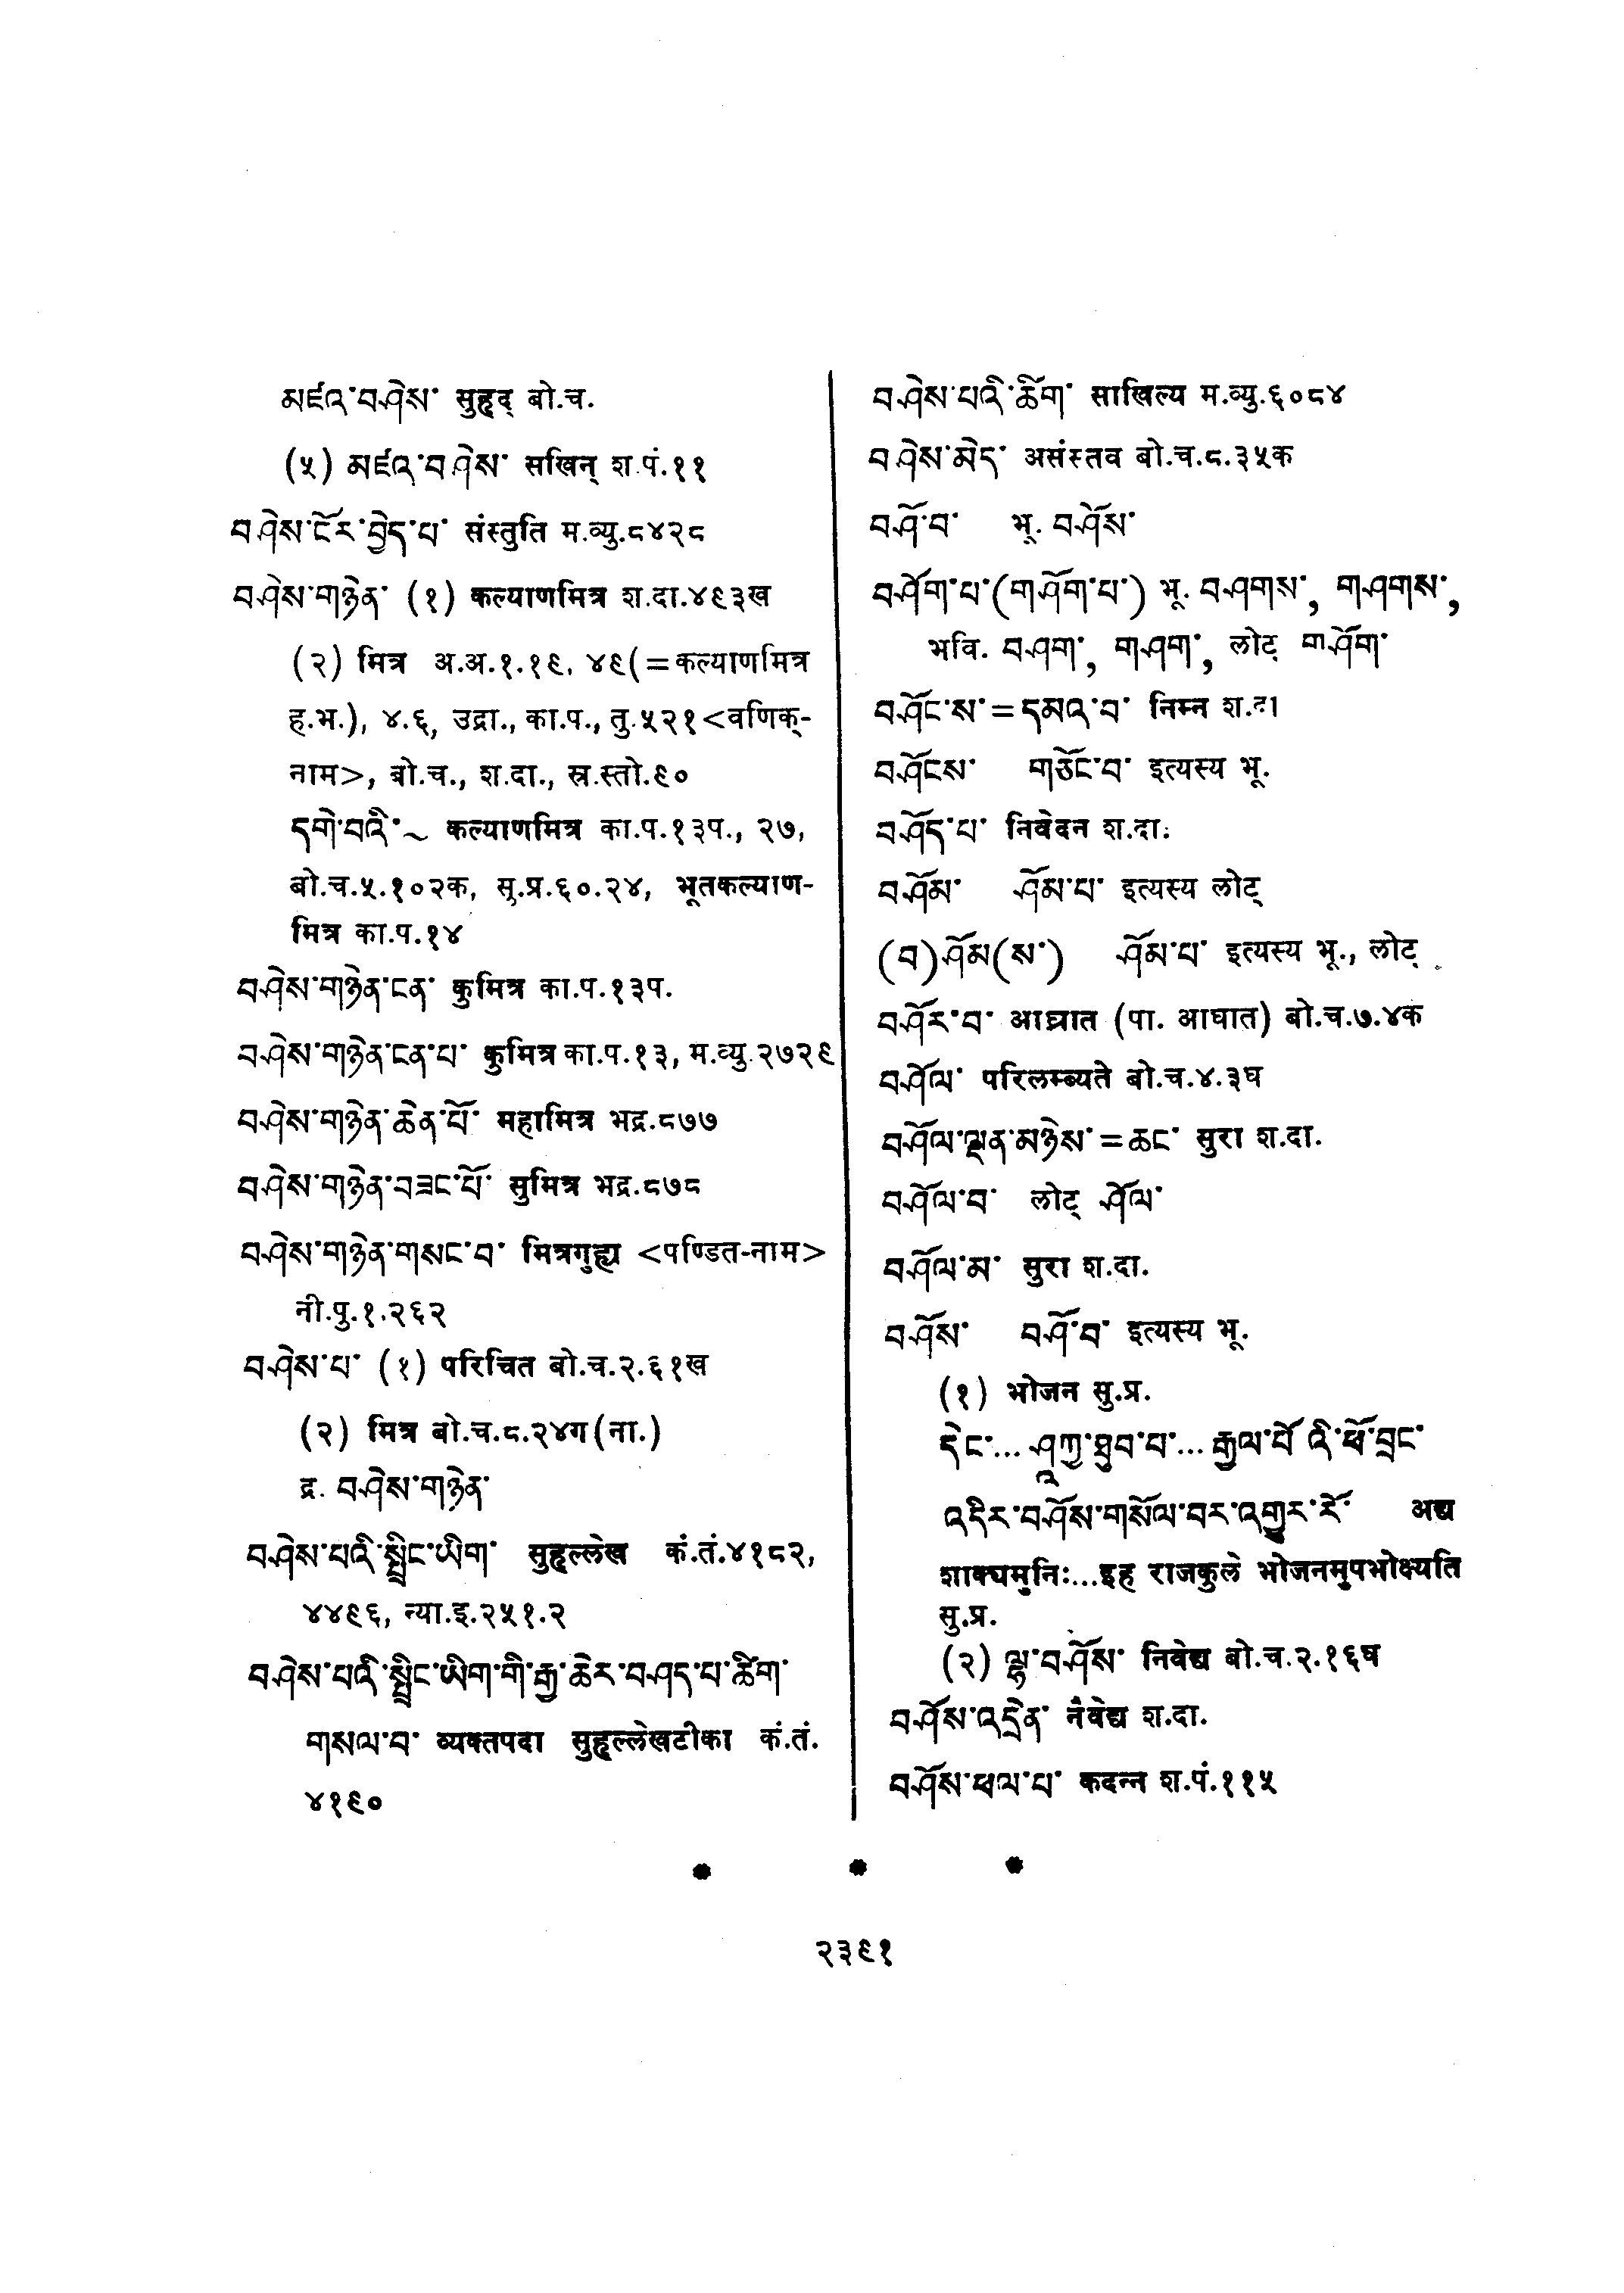 མཛའ་བཤེས་ सुहृद् बो.च.
(५) མཛའ་བཤེས་ सखिन् श.पं.११
བཤེས་ངོར་བྱེད་པ་ संस्तुति म.व्यु.८४२८
བཤེས་གཉེན་ (१) कल्याणमित्र श.दा.४९३ख
(२) मित्र अ.अ.१.१९, ४९(=कल्याणमित्र
ह.भ.), ४.६, उद्रा., का.प., तु.५२१<वणिक्-
नाम>, बो.च., श.दा., स्र.स्तो.९०
དགེ་བའི་~ कल्याणमित्र का.प.१३प., २७,
बो.च.५.१०२क, सु.प्र.६०.२४, भूतकल्याण-
मित्र का.प.१४
བཤེས་གཉེན་ངན་ कुमित्र का.प.१३प.
བཤེས་གཉེན་ངན་པ་ कुमित्र का.प.१३, म.व्यु.२७२९
བཤེས་གཉེན་ཆེན་པོ་ महामित्र भद्र.८७७
བཤེས་གཉེན་བཟང་པོ་ सुमित्र भद्र.८७८
བཤེས་གཉེན་གསང་བ་ मित्रगुह्य <पण्डित-नाम>
नी.पु.१.२६२
བཤེས་པ་ (१) परिचित बो.च.२.६१ख
(२) मित्र बो.च.८.२४ग(ना.)
द्र. བཤེས་གཉེན་
བཤེས་པའི་སྤྲིང་ཡིག་ सुहृल्लेख कं.तं.४१८२,
४४९६, न्या.इ.२५१.२
བཤེས་པའི་སྤྲིང་ཡིག་གི་རྒྱ་ཆེར་བཤད་པ་ཚིག་
གསལ་བ་ व्यक्तपदा सुहृल्लेखटीका कं.तं.
४१९०
བཤེས་པའི་ཚིག་ साखिल्य म.व्यु.६०८४
བཤེས་མེད་ असंस्तव बो.च.८.३५क
བཤོ་བ་ भू. བཤོས་
བཤོག་པ་(གཤོག་པ་) भू. བཤགས་, གཤགས་,
भवि. བཤག་, གཤག་, लोट् གཤོག་
བཤོང་ས་=དམའ་བ་ निम्न श.दा
བཤོངས་ གཅོང་བ་ इत्यस्य भू.
བཤོད་པ་ निवेदन श.दा.
བཤོམ་ ཤོམ་པ་ इत्यस्य लोट्
(བ)ཤོམ(ས་) ཤོམ་པ་ इत्यस्य भू., लोट्
བཤོར་བ་ आघ्रात (पा. आघात) बो.च.७.४क
བཤོལ་ परिलम्ब्यते बो.च.४.३घ
བཤོལ་ལྡན་མཉེས་=ཆང་ सुरा श.दा.
བཤོལ་བ་ लोट् ཤོལ་
བཤོལ་མ་ सुरा श.दा.
བཤོས་ བཤོ་བ་ इत्यस्य भू.
(१) भोजन सु.प्र.
དེང་... ཤཱཀྱ་ཐུབ་པ་... རྒྱལ་པོ་འི་ཕོ་བྲང་
འདིར་བཤོས་གསོལ་བར་འགྱུར་རོ་ अद्य
शाक्यमुनिः...इह राजकुले भोजनमुपभोक्ष्यति
सु.प्र.
(२) ལྷ་བཤོས་ निवेद्य बो.च.२.१६घ
བཤོས་འདྲེན་ नैवेद्य श.दा.
བཤོས་ཕལ་པ་ कदन्न श.पं.११५
२३९१